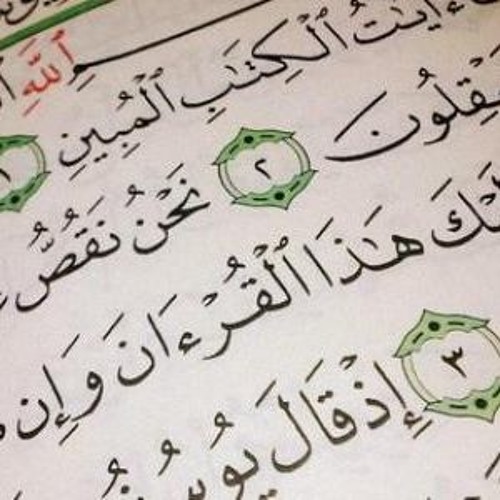 ٱللَّهِ
ءَايَٰتُ ٱلْكِتَٰبِ ٱلْمُبِينِ ١
تَعْقِلُونَ ٢ نَحْنُ نَقُصُّ
هَٰذَا ٱلْقُرْءَانَ وَإِن
٣ إِذْ قَالَ يُوسُ